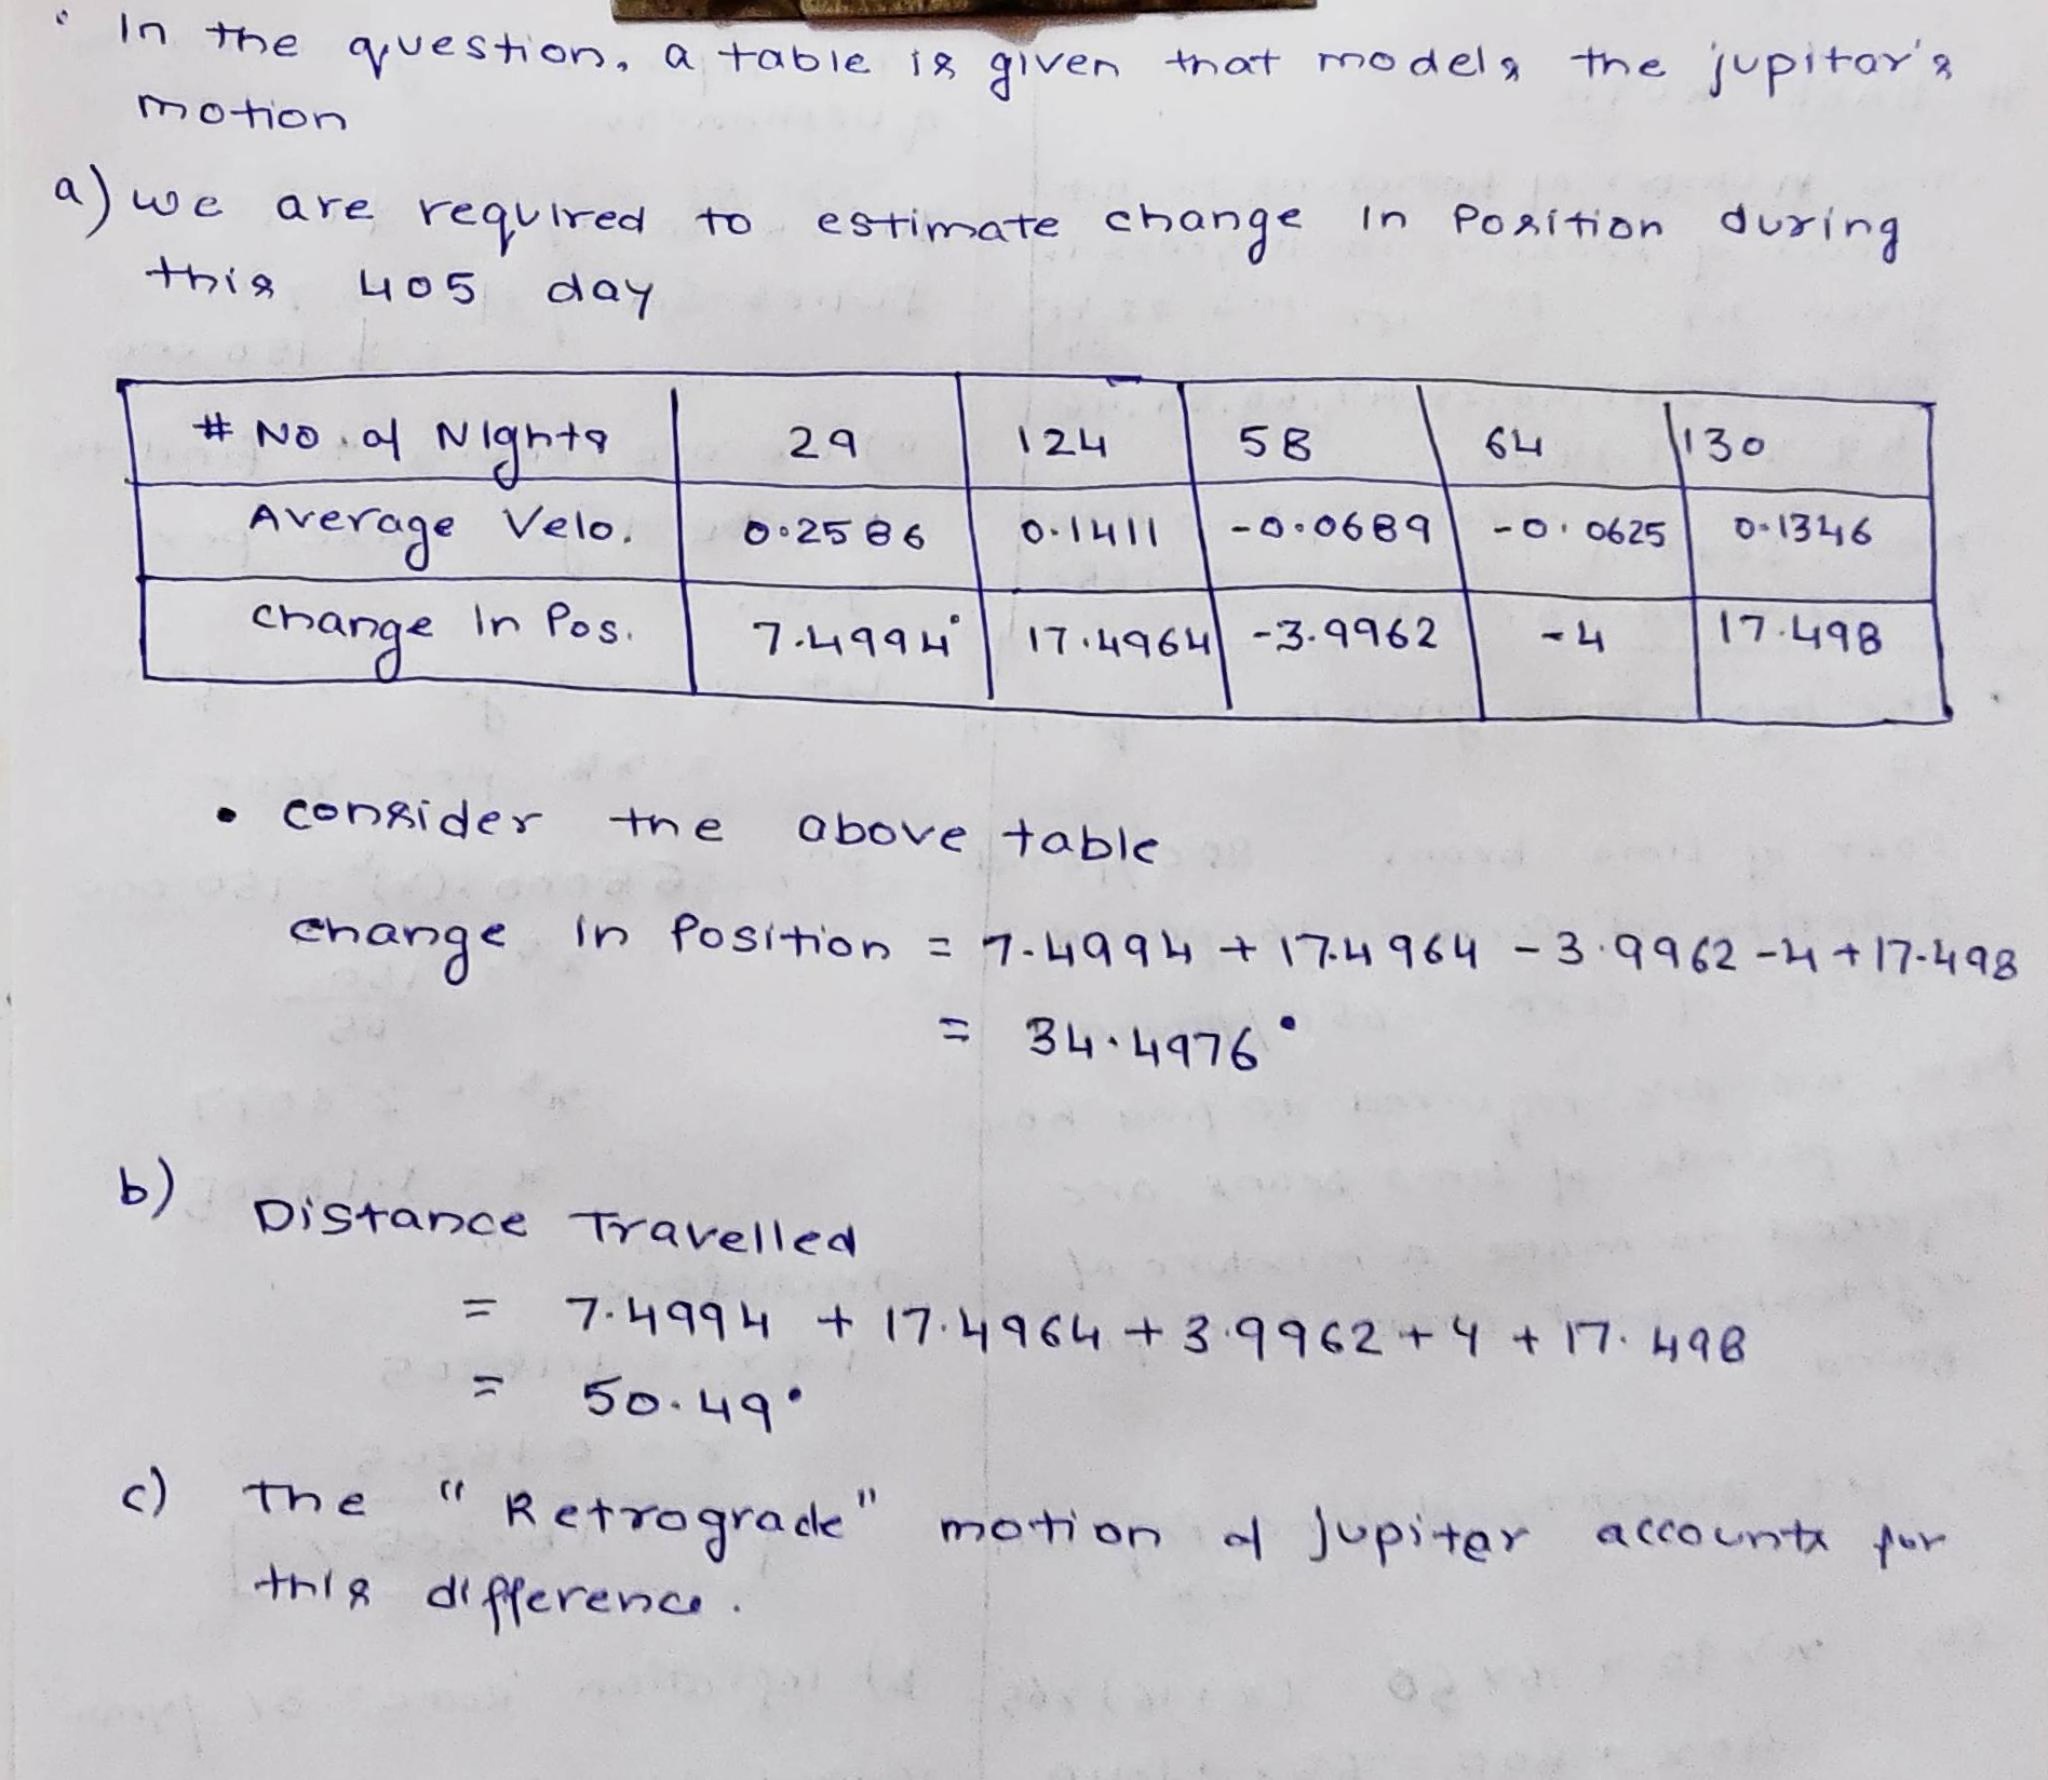 • In the question, a table is given that models the jupitar's
motion
a) we are required to estimate change in Position during
this 405 day
# No. of Nights 29 124 58 64 130
Average Velo. 0.2586 0.1411 -0.0689 -0.0625 0.1346
change in Pos. 7.4994° 17.4964 -3.9962 -4 17.498
• consider the above table
change in Position = 7.4994 + 17.4964 - 3.9962 - 4 + 17.498
= 34.4976°
b) Distance Travelled
= 7.4994 + 17.4964 + 3.9962 + 4 + 17.498
= 50.49°
c) The "Retrograde" motion of Jupiter accounts for
this difference.